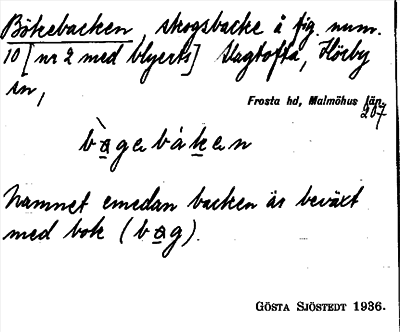 Bökebacken, skogsbacke å fig. num.
10 [nr 2 med blyerts] Slagtofta, Hörby
sn,
Frosta hd, Malmöhus län.
207
bàgabákan
Namnet emedan backen är beväxt
med bok (bag).
GÖSTA SJÖSTEDT 1936.